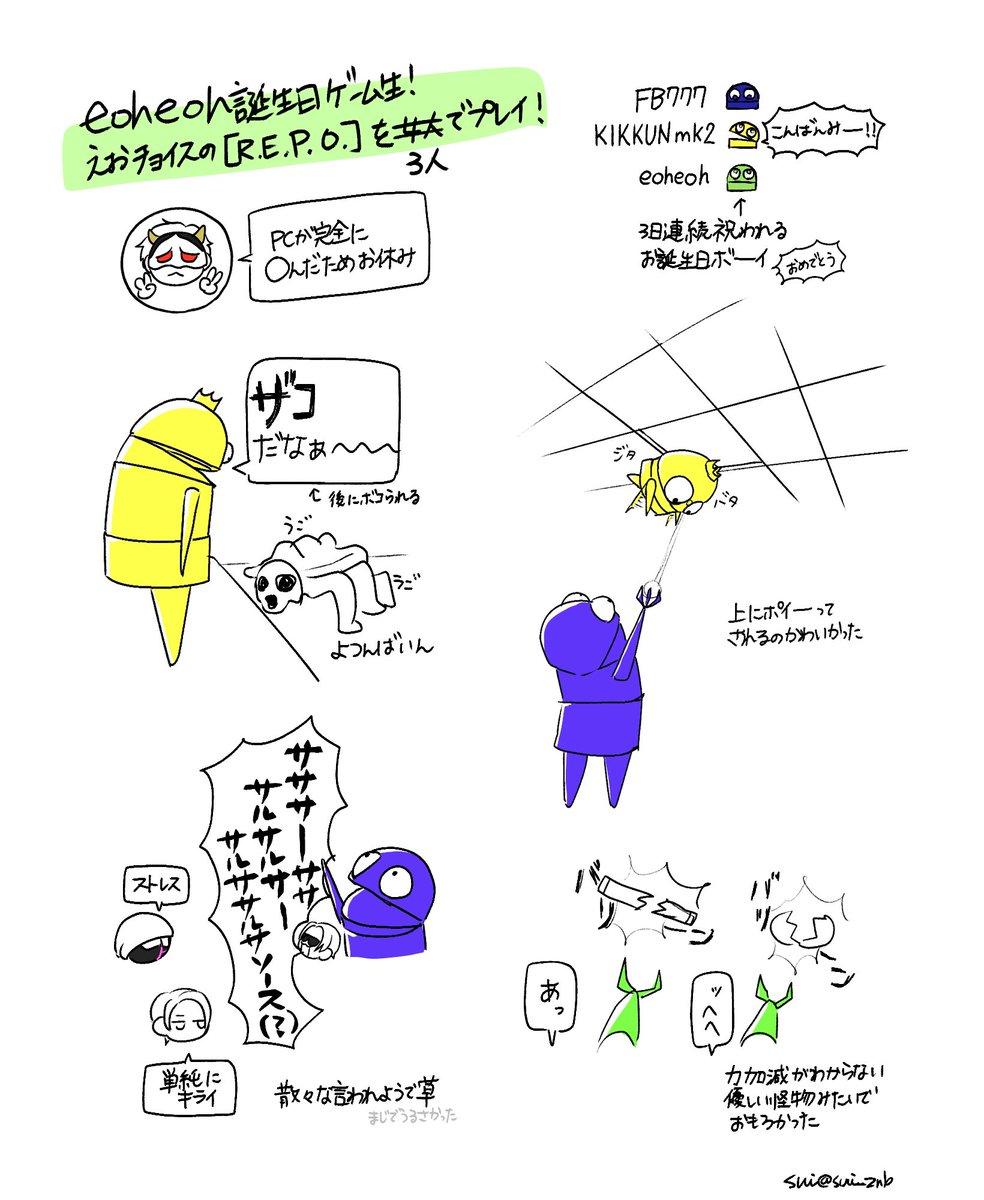 eoheoh誕生日ゲーム生!
えおチョイスの[R.E.P.O.]を4人でプレイ!
3人
FB777
KIKKUNmk2
こんばんみー!!
eoheoh
↑
3日連続祝われる
お誕生日ボーイ
おめでとう
PCが完全に
○んだためお休み
ザコ
だなぁ〜〜〜
↑後にボコられる
うご
うご
よつんばいん
ジタ
バタ
上にポイーって
されるのかわいかった
サササーササ
サルサルサー
サルササルサソース(?)
ストレス
単純に
キライ
散々な言われようで草
まじでうるさかった
バ
ーン
バ
ーン
あっ
ッヘヘ
力加減がわからない
優しい怪物みたいで
おもろかった
sui@sui_znb